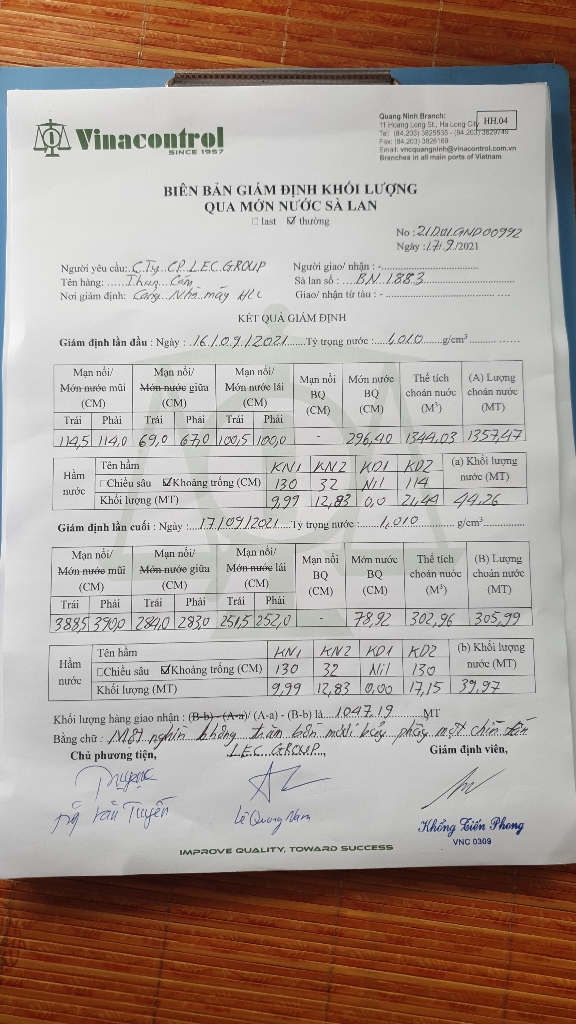 Vinacontrol
SINCE 1957
Quang Ninh Branch:
11 Hoang Long St., Ha Long City
HH.04
Tel: (84.203) 3825535 - (84.203) 3829749
Fax: (84.203) 3826169
Email: vncquangninh@vinacontrol.com.vn
Branches in all main ports of Vietnam
BIÊN BẢN GIÁM ĐỊNH KHỐI LƯỢNG
QUA MỚN NƯỚC SÀ LAN
□ last ☑ thường
No: 21D01GND00992
Ngày: 17/9/2021
Người yêu cầu: C.Ty CP L.E.C GROUP
Người giao/ nhận : -
Tên hàng: Than Cám
Sà lan số : BN.1883
Nơi giám định: Cảng Nhà máy
Giao/ nhận từ tàu : -
KẾT QUẢ GIÁM ĐỊNH
Giám định lần đầu : Ngày : 16/09/2021 Tỷ trọng nước : 1,010 g/cm³
Mạn nổi/ Mớn nước mũi (CM) Mạn nổi/ Mớn nước giữa (CM) Mạn nổi/ Mớn nước lái (CM) Mạn nổi BQ (CM) Mớn nước BQ (CM) Thể tích choán nước (M³) (A) Lượng choán nước (MT)
Trái Phải Trái Phải Trái Phải
114,5 114,0 69,0 67,0 100,5 100,0 - 296,40 1344,03 1357,47
Hầm nước Tên hầm KN1 KN2 KD1 KD2 (a) Khối lượng nước (MT)
□Chiều sâu ☑Khoảng trống (CM) 130 32 Nil 114
Khối lượng (MT) 9,99 12,83 0,0 21,44 44,26
Giám định lần cuối : Ngày : 17/09/2021 Tỷ trọng nước : 1,010 g/cm³
Mạn nổi/ Mớn nước mũi (CM) Mạn nổi/ Mớn nước giữa (CM) Mạn nổi/ Mớn nước lái (CM) Mạn nổi BQ (CM) Mớn nước BQ (CM) Thể tích choán nước (M³) (B) Lượng choán nước (MT)
Trái Phải Trái Phải Trái Phải
388,5 390,0 284,0 283,0 251,5 252,0 - 78,92 302,96 305,99
Hầm nước Tên hầm KN1 KN2 KD1 KD2 (b) Khối lượng nước (MT)
□Chiều sâu ☑Khoảng trống (CM) 130 32 Nil 130
Khối lượng (MT) 9,99 12,83 0,00 17,15 39,97
Khối lượng hàng giao nhận : (B-b) - (A-a)/ (A-a) - (B-b) là 1047,19 MT
Bằng chữ : Một nghìn không trăm bốn mươi bảy phẩy một chín tấn
Chủ phương tiện, L.E.C. GROUP, Giám định viên,
Văn Tuyến
Lê Quang Nam
Khổng Tiến Phong
VNC 0309
IMPROVE QUALITY, TOWARD SUCCESS